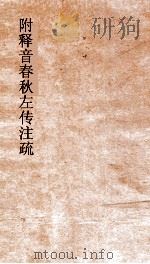 附释音春秋左传注疏
mtoou.info